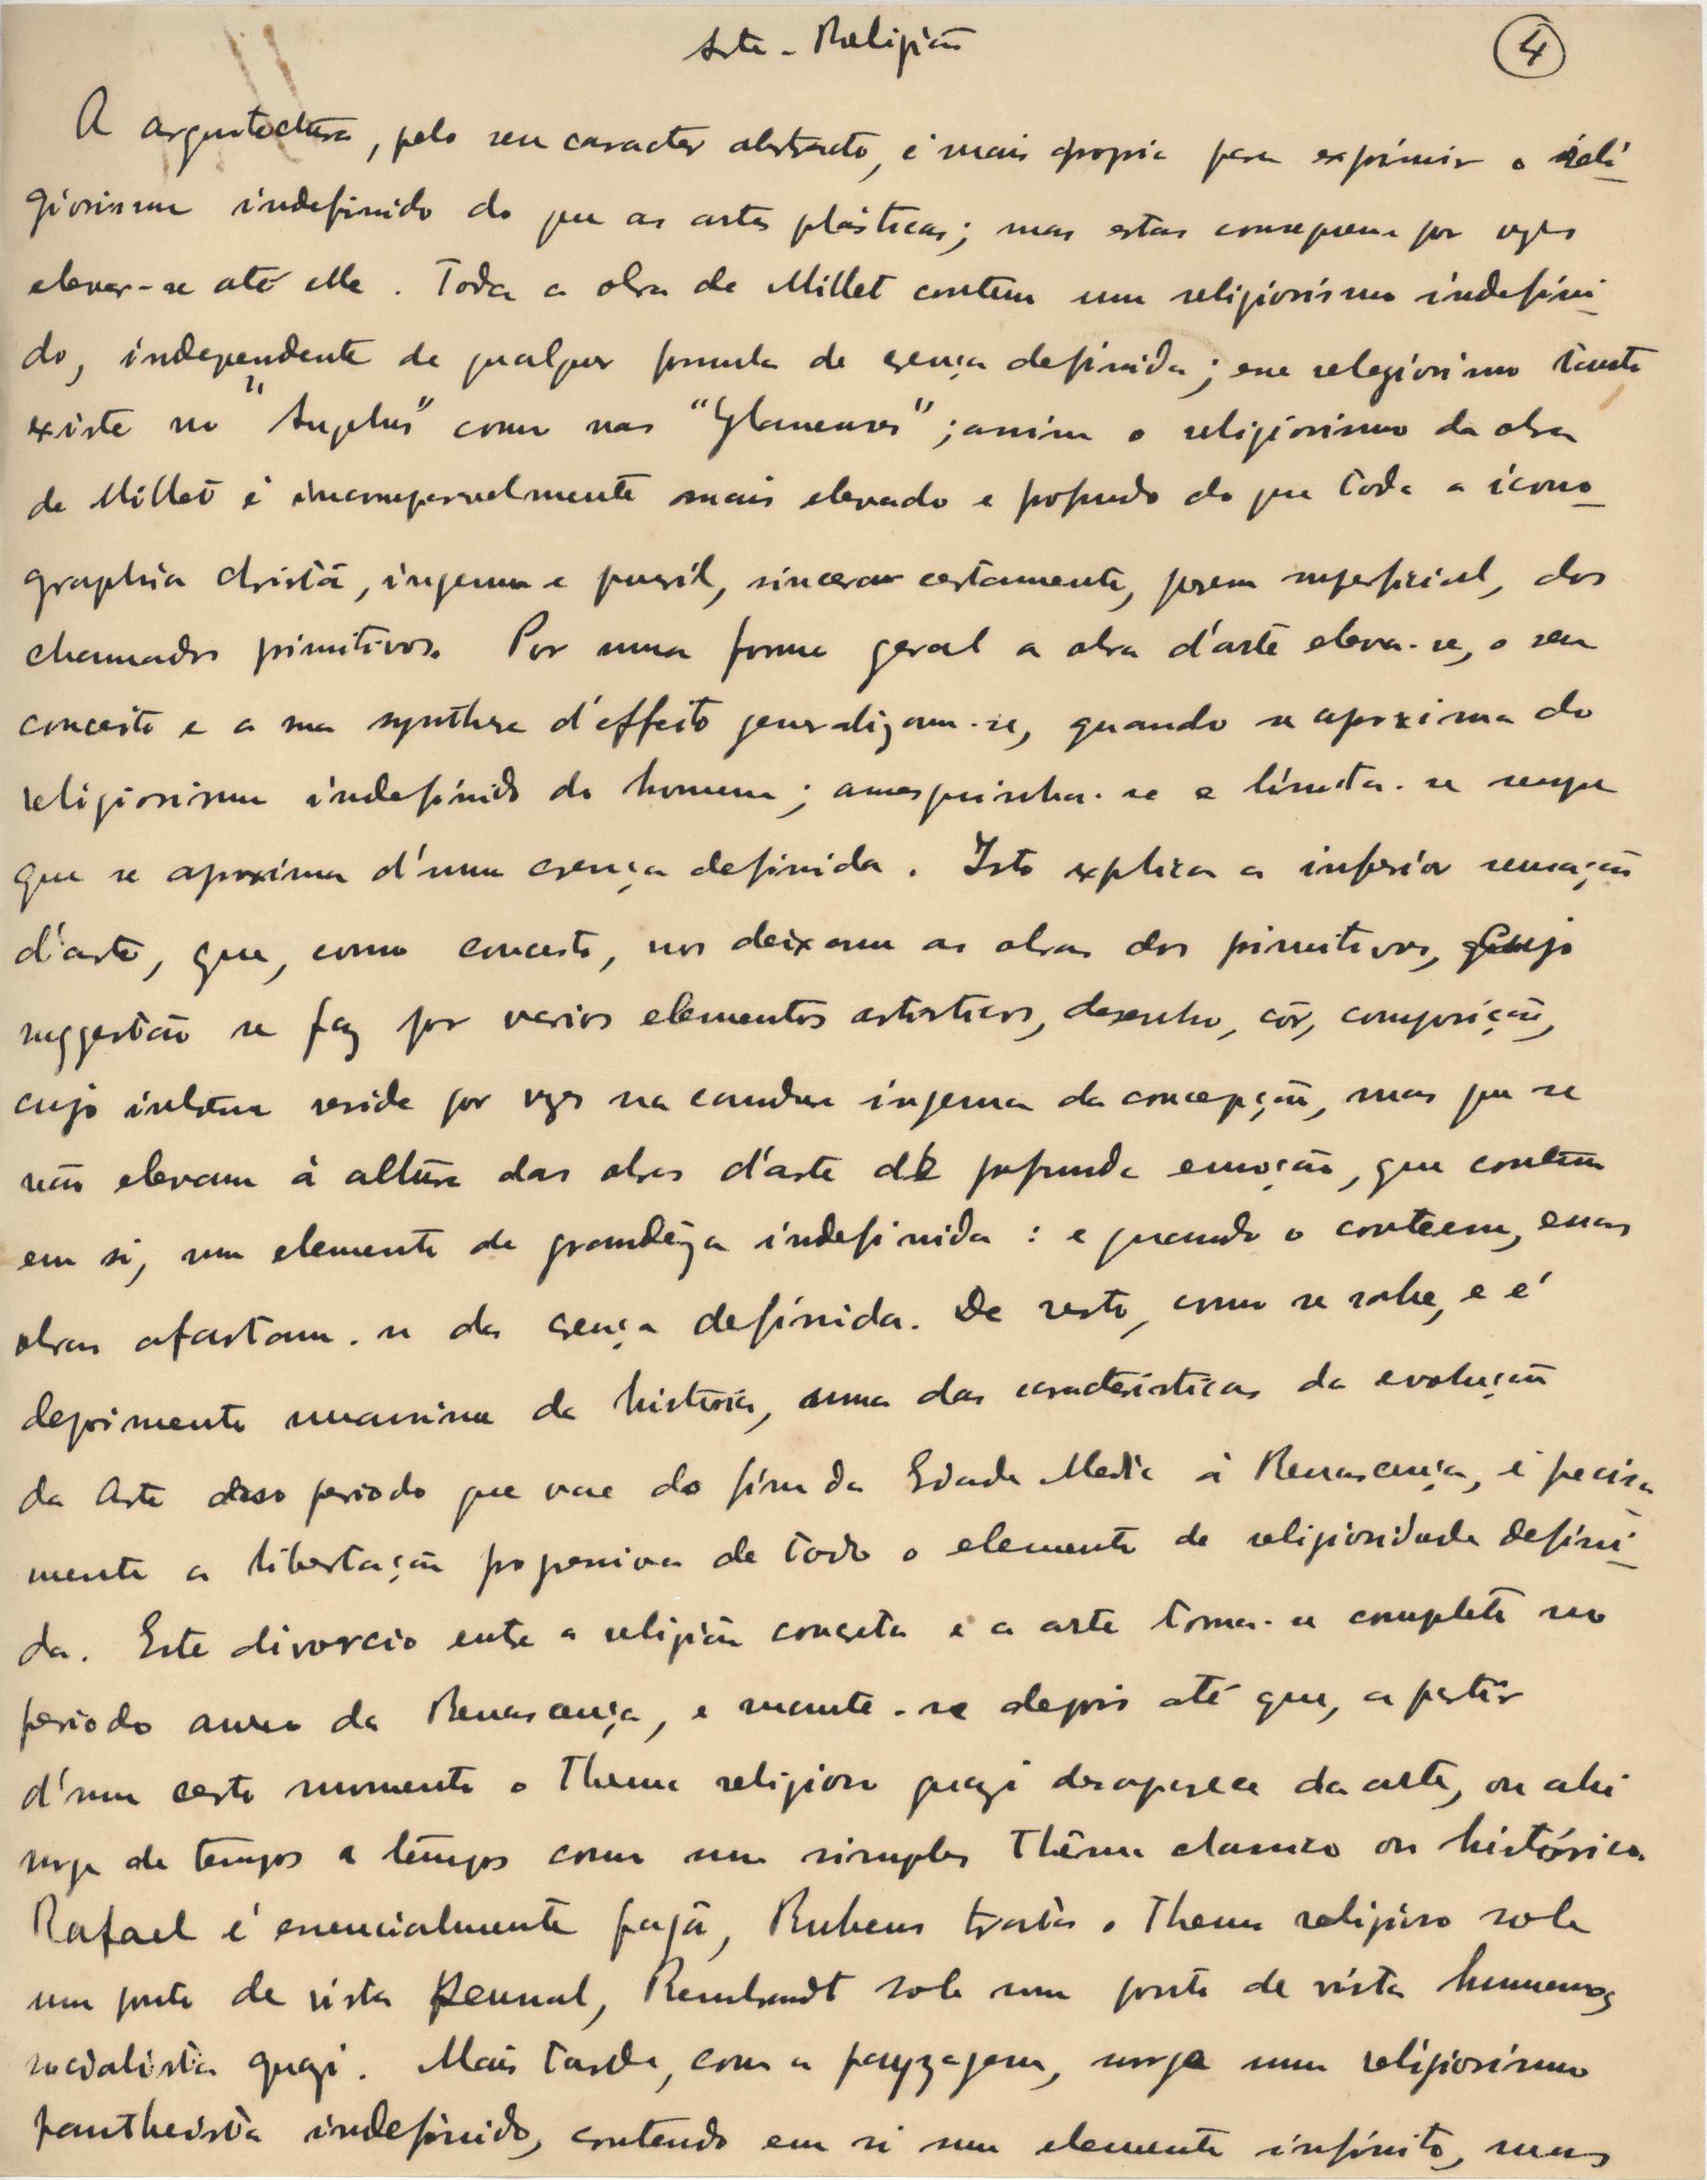 Arte - Religião
4
A arquitectura, pelo seu caracter abstracto, é mais propria para exprimir o reli-
giosismo indefinido do que as artes plásticas; mas estas conseguem por vezes
elevar-se até elle. Toda a obra de Millet contem um religiosismo indefini-
do, independente de qualquer formula de crença definida; esse religiosismo tanto
existe no "Angelus" como nas "Glaneuses"; assim o religiosismo da obra
de Millet é incomparavelmente mais elevado e profundo do que toda a icono-
graphia christã, ingenua e pueril, sincera certamente, porem superficial, dos
chamados primitivos. Por uma forma geral a obra d'arte eleva-se, o seu
conceito e a sua synthese d'effeito generalizam-se, quando se aproxima do
religiosismo indefinido do homem; amesquinha-se e limita-se sempre
que se aproxima d'uma crença definida. Isto explica a inferior sensação
d'arte, que, como conceito, nos deixam as obras dos primitivos, cuja
suggestão se faz por varios elementos artisticos, desenho, côr, composição,
cujo interesse reside por vezes na candura ingenua da concepção, mas que se
não elevam à altura das obras d'arte de profunda emoção, que contêm
em si, um elemento de grandêza indefinida: e quando o conteem, essas
obras afastam-se da crença definida. De resto, como se sabe, e é
deprimente massima da historia, uma das caracteristicas da evolução
da Arte desse periodo que vae do fim da Edade Media à Renascença, é precisa-
mente a libertação progressiva de todo o elemento de religiosidade defini-
da. Este divorcio entre a religião concreta e a arte torna-se completo no
periodo aureo da Renascença, e mante-se depois até que, a partir
d'um certo momento o thema religioso quazi desaparece da arte, ou ahi
surge de tempos a tempos como um simples thêma classico ou histórico.
Rafael é essencialmente pagã, Rubens trata o thema religioso sob
um ponto de vista sensual, Rembrandt sob um ponto de vista humano,
socialista quazi. Mais tarde, com a payzagem, surge um religiosismo
pantheista indefinido, contendo em si um elemento infinito, mas